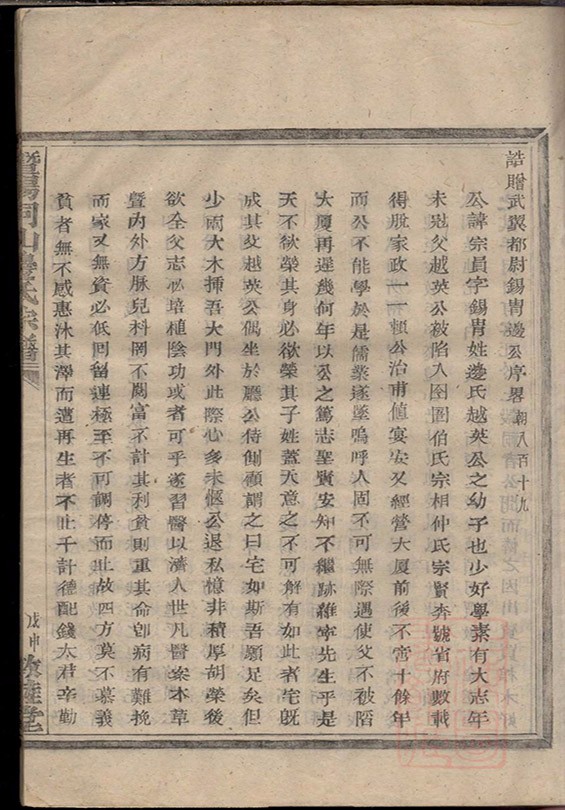 誥贈武翼都尉錫胄邊公序畧 朝八百十九
公諱宗員字錫胄姓邊氏越英公之幼子也少好學素有大志年
未冠父越英公被陷入囹圄伯氏宗相仲氏宗賢奔號省府數載
得脫家政一一賴公治甫値宴安又經營大厦前後不啻十餘年
而公不能學於是儒業遂墜嗚呼人固不可無際遇使父不被陷
大厦再遲幾何年以公之篤志聖賢安知不繼跡雒寧先生乎是
天不欲榮其身必欲榮其子姓蓋天意之不可解有如此者宅旣
成其父越英公偶坐於廳公侍側顧謂之曰宅如斯吾願足矣但
少兩大木揷吾大門外此際心多未愜公退私憶非積厚胡榮後
欲全父志必培植陰功或者可乎遂習醫以濟人世凡醫案本草
曁內外方脉兒科罔不閱富不計其利貧則重其命卽病有難挽
而家又無資必低囘留連極至不可調停而止故四方莫不慕義
貧者無不感惠沐其澤而遭再生者不止千計德配錢太君辛勤
暨陽同山邊氏宗譜
戊申 敘倫堂